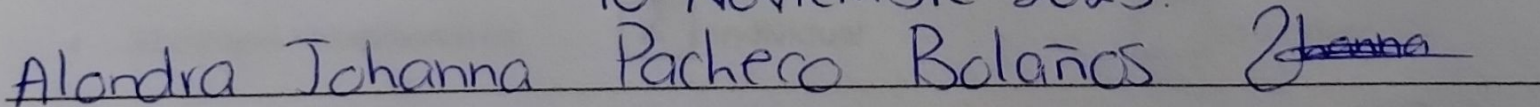 Alondra Johanna Pacheco Bolaños